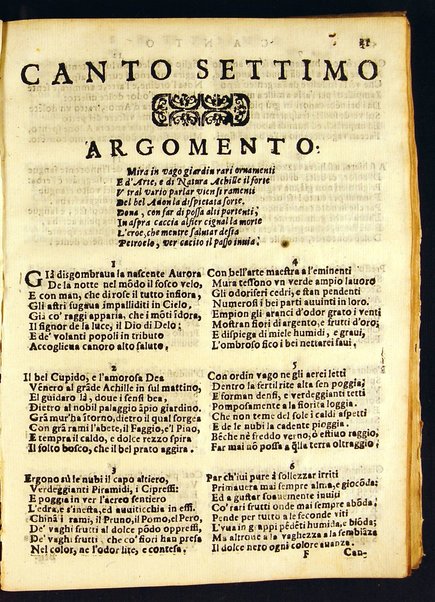 41
CANTO SETTIMO
ARGOMENTO:
Mira in vago giardin rari ornamenti
E d'Arte, e di Natura Achille il forte
V tra'l vario parlar vien si ramenti
Del bel Adon la dispietata sorte,
Dona, con far di possa alti portenti;
In aspra caccia alfier cignal la morte
L'eroe, che mentre salutar desia
Petroclo, ver cacito il passo inuia.
1
GIà disgombraua la nascente Aurora
De la notte nel módo il fosco velo,
E con man, che di rose il tutto infiora,
Gli astri fugaua impalliditi in Cielo.
Gia co' raggi apparia, che i móti idora,
Il signor de la luce, il Dio di Delo;
E de' volanti popoli in tributo
Accoglieua canoro alto saluto,
2
Il bel Cupido, e l'amorosa Dea
Venero al gráde Achille in sul mattino,
El guidaro là, doue i sensi bea,
Dietro al nobil palaggio ápio giardino.
Grã mur'ha torno, dietro il qual sorgea
Con grã rami l'abete, il Faggio, e'l Pino,
E tempra il caldo, e dolce rezzo spira
Il folto bosco, che il bel prato aggira.
3
Ergono sù le nubi il capo altiero,
Verdeggianti Piramidi, i Cipressi:
E poggia in ver l'aereo sentiero
L'edra, e s'inesta, ed auuiticchia in essi.
Chinã i rami, il Pruno, il Pomo, el Pero,
De' vaghi frutti al dolce pôdo oppressi,
De' vaghi frutti, che co' fiori han presa
Nel color, ne l'odor lite, e contesa.
4
Con bell'arte maestra a l'eminenti
Mura tessono vn verde ampio lauoro
Gli odoriseri cedri, e stan pendenti
Numerosi i bei parti auuinti in loro.
Empion gli aranci d'odor grato i venti
Mostran fiori di argento, e frutti d'oro;
E dispiega di miele humidi, e graui,
L'ombroso fico i bei nettarei faui,
5
Con ordin vago ne gli aerei letti
Dentro la fertil rite alta sen poggia;
E forman densi, e verdeggianti tetti
Pomposamente a la fiorita loggia.
Che non teme del sole i caldi aspetti
E de le nubi la cadente pioggia.
Bêche nè freddo verno, ò estiuo raggio,
Far mai nô possa a q̃lla terra oltraggio.
6
Par ch'iui pure à sollezzar irriti
Primauera mai sempre alma, e giocôda;
Ed a gustar soauemente inuiti
Co' rari frutti onde mai sempre abôda;
Pende per tutto a le seconde viti
L'vua in grappi pêdẽti humida, e biôda;
Ma altrone a la vaghezza a la sembiãza
Il dolce nero ogni colore auanza.
F
Con-